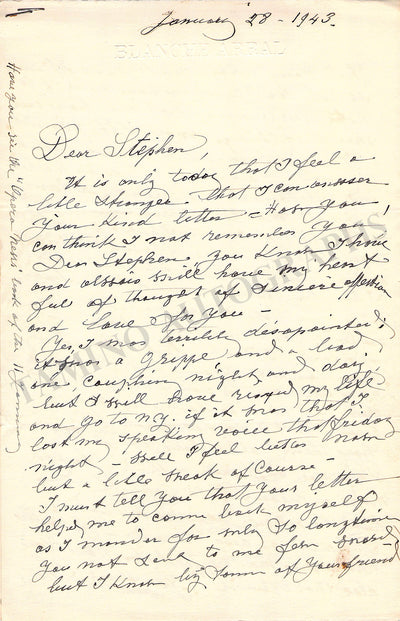 January 28 - 1943.
BLANCHE ARRAL
Dear Stephen,
It is only today that I feel a
little stronger that I can answer
your kind letter - How you,
can think I not remember you,
Dear Stephen, you know I have
and always will have my heart
full of thought of sincere affection
and love for you -
Yes, I was terribly desapointed;
it was a grippe and a bad
one, coughing night and day,
but I will have risqued my life
and go to N.Y. if it was that I
lost my speaking voice that friday
night - Well I feel better now
but a little weak of course -
I must tell you that your letter
helped me to come back myself
as I wonder for why so long time
you not send to me few words
but I know by some of your friend
Have you see the "Opera News" week of the 11 January
TAMINO AUTOGRAPHS